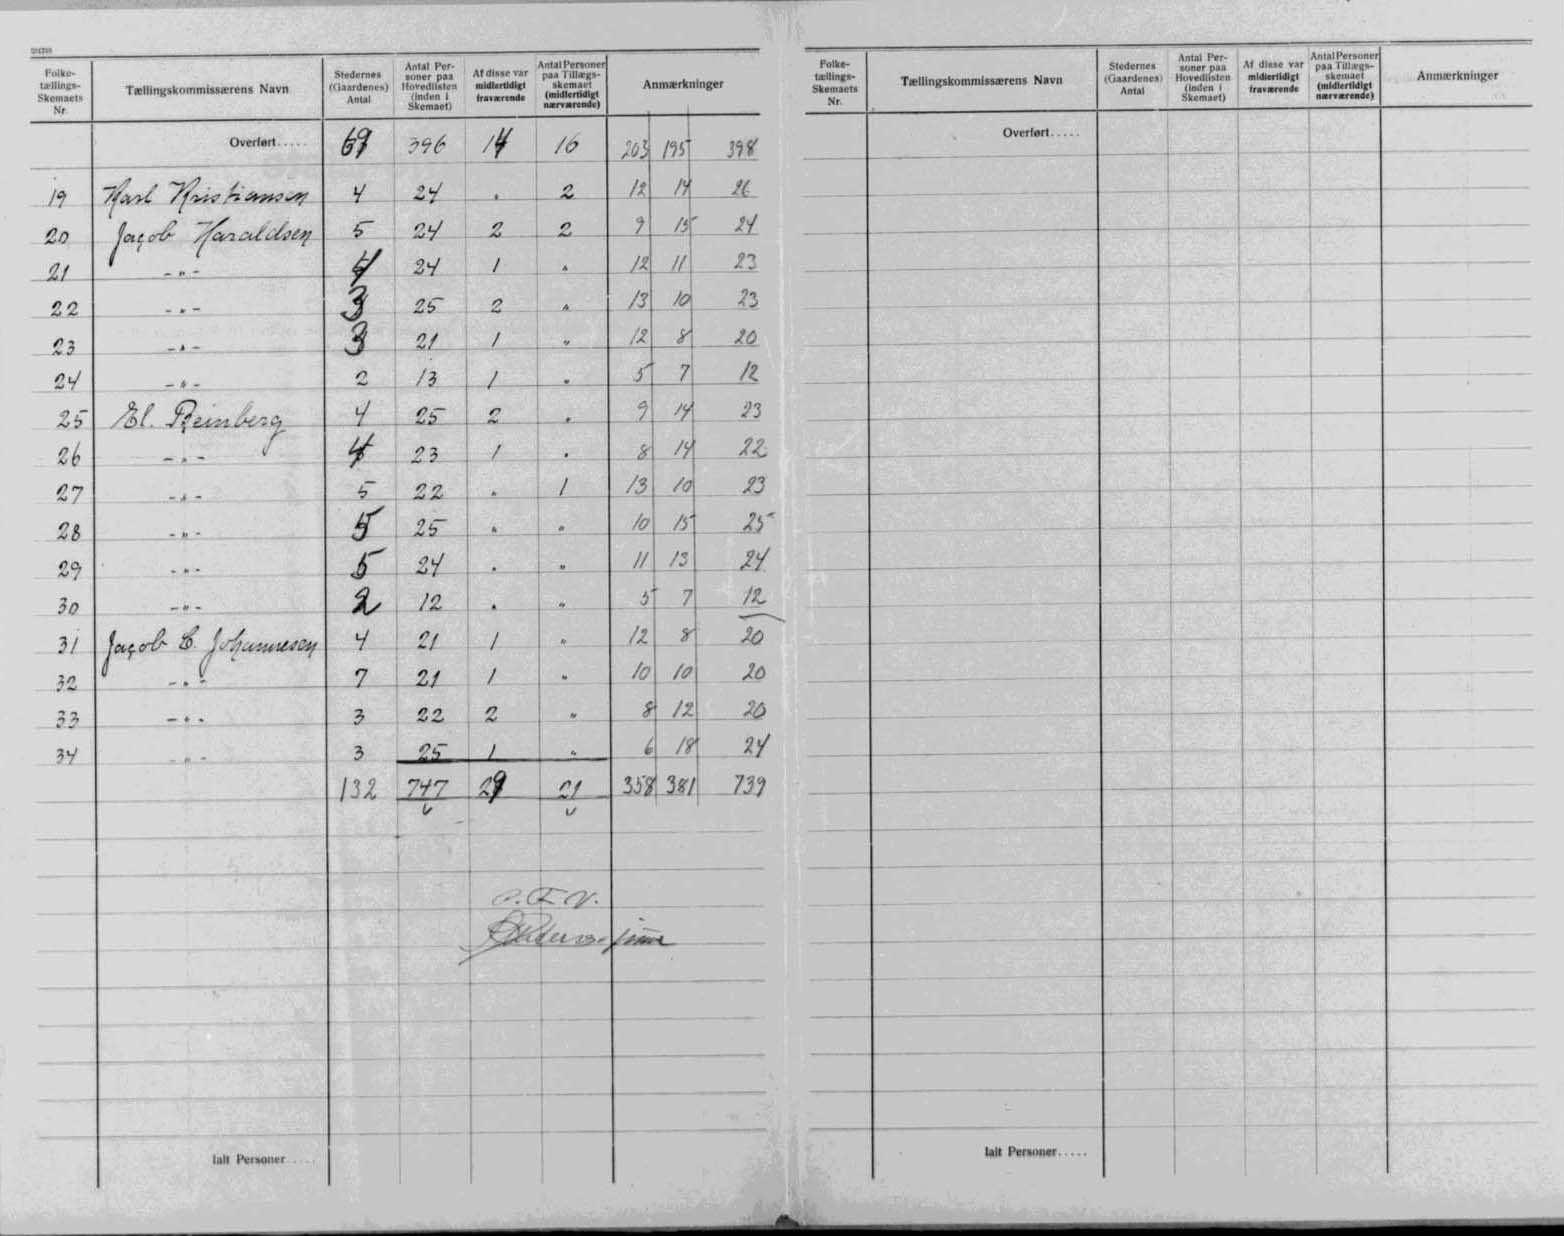 Folke-tællings-Skemaets Nr. Tællingskommissærens Navn Stedernes (Gaardenes) Antal Antal Personer paa Hovedlisten (inden i Skemaet) Af disse var midlertidigt fraværende Antal Personer paa Tillægs-skemaet (midlertidigt nærværende) Anmærkninger
Overført..... 396 14 16 203 195 398
19 Karl Kristiansen 4 24 . 2 12 14 26
20 Jacob Haraldsen 5 24 2 2 9 15 24
21 -"- 4 24 1 " 12 11 23
22 -"- 3 25 2 " 13 10 23
23 -"- 3 21 1 " 12 8 20
24 -"- 2 13 1 . 5 7 12
25 El. Reinberg 4 25 2 . 9 14 23
26 -"- 4 23 1 . 8 14 22
27 -"- 5 22 " 1 13 10 23
28 -"- 5 25 " " 10 15 25
29 -"- 5 24 . " 11 13 24
30 -"- 2 12 . " 5 7 12
31 Jacob C. Johannesen 4 21 1 " 12 8 20
32 -"- 7 21 1 " 10 10 20
33 -"- 3 22 2 " 8 12 20
34 -"- 3 25 1 " 6 18 24
132 747 29 21 358 381 739
Ialt Personer.....
Folke-tællings-Skemaets Nr. Tællingskommissærens Navn Stedernes (Gaardenes) Antal Antal Personer paa Hovedlisten (inden i Skemaet) Af disse var midlertidigt fraværende Antal Personer paa Tillægs-skemaet (midlertidigt nærværende) Anmærkninger
Overført.....
Ialt Personer.....